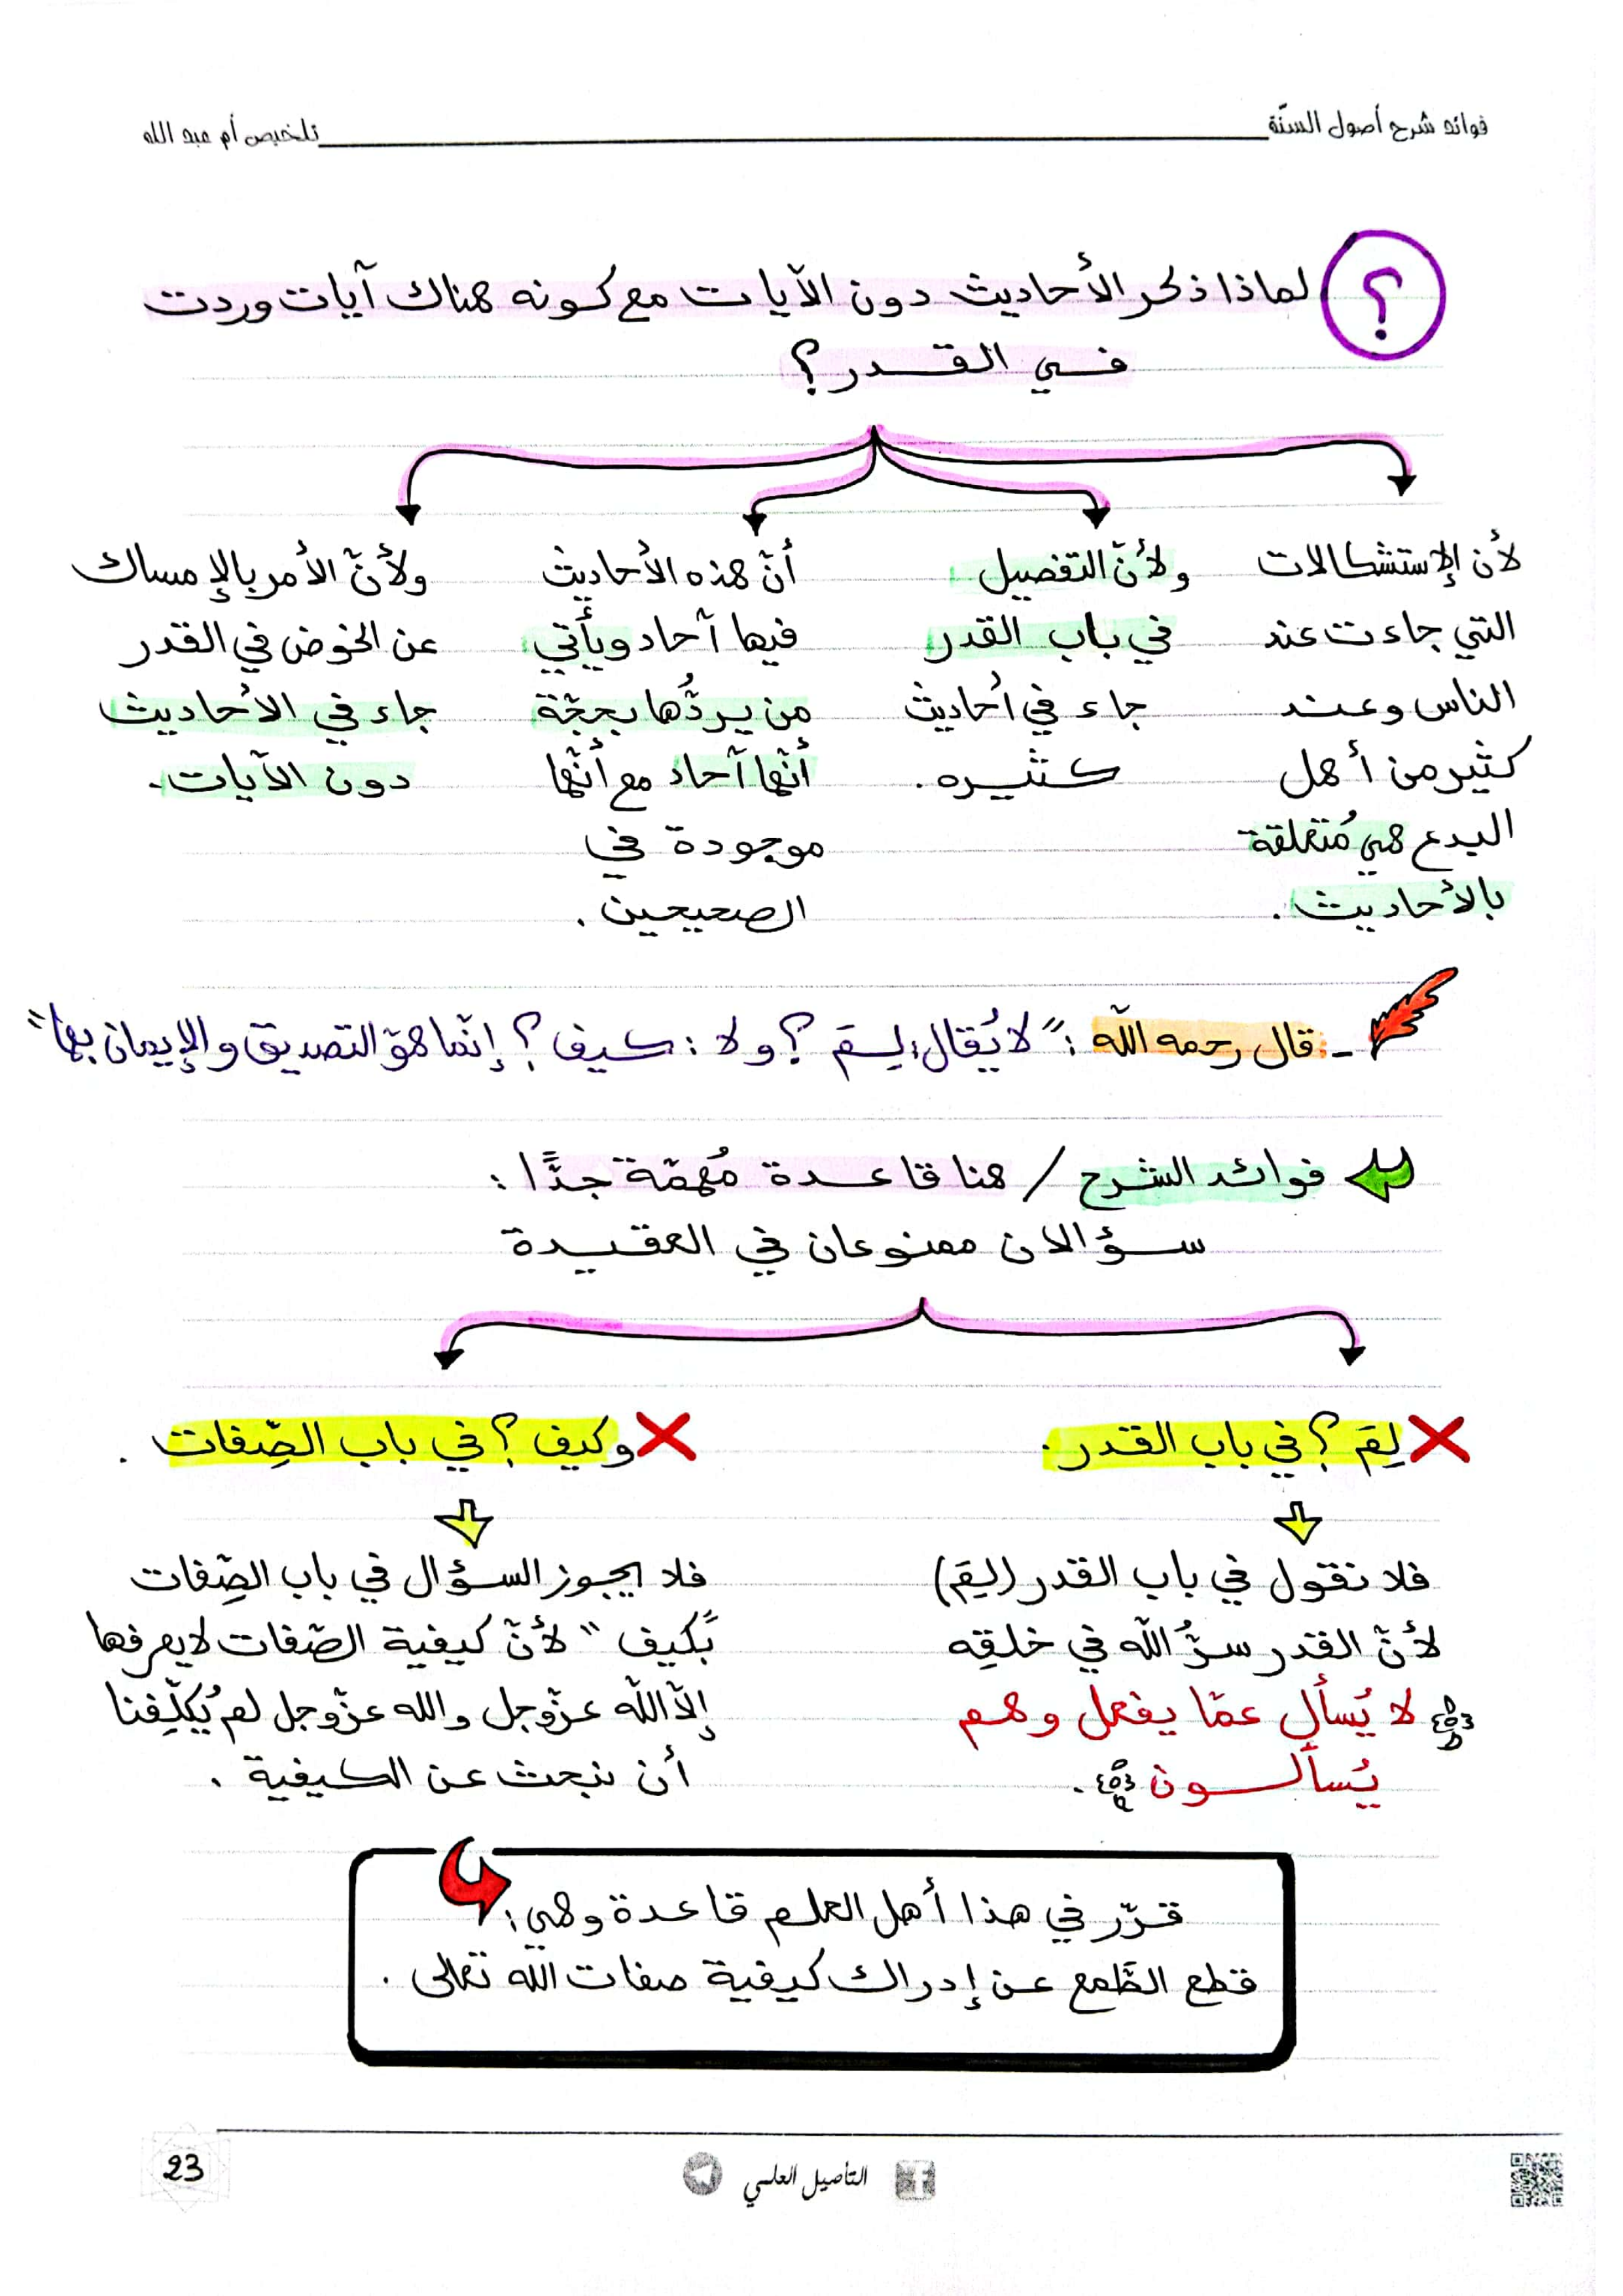 فوائد شرح أصول السنّة
تلخيص أم عبد الله
؟
لماذا ذكر الأحاديث دون الآيات مع كونه هناك آيات وردت
في القدر؟
لأن الإستشكالات
التي جاءت عند
الناس وعند
كثير من أهل
البدع هي مُتعلقة
بالأحاديث.
ولأنّ التفصيل
في باب القدر
جاء في أحاديث
كثيره.
أنّ هذه الأحاديث
فيها آحاد ويأتي
من يردُّها بحجّة
أنّها آحاد مع أنّها
موجودة في
الصحيحين.
ولأنّ الأمر بالإمساك
عن الخوض في القدر
جاء في الأحاديث
دون الآيات.
- قال رحمه الله: "لا يُقال: لِمَ؟ ولا: كيف؟ إنّما هو التصديق والإيمان بها"
فوائد الشرح / هنا قاعدة مُهمّة جدًّا:
سؤالان ممنوعان في العقيدة
لِمَ؟ في باب القدر.
فلا نقول في باب القدر (لِمَ)
لأنّ القدر سرُّ الله في خلقِه
﴿لا يُسأل عمّا يفعل وهم
يُسألون﴾.
وكيف؟ في باب الصِّفات.
فلا يجوز السؤال في باب الصِّفات
بـ"كيف" لأنّ كيفية الصّفات لا يعرفها
إلاّ الله عزّوجل والله عزّوجل لم يُكلِّفنا
أن نبحث عن الكيفية.
قرّر في هذا أهل العلم قاعدة وهي:
قطع الطّمع عن إدراك كيفية صفات الله تعالى.
التأصيل العلمي
23